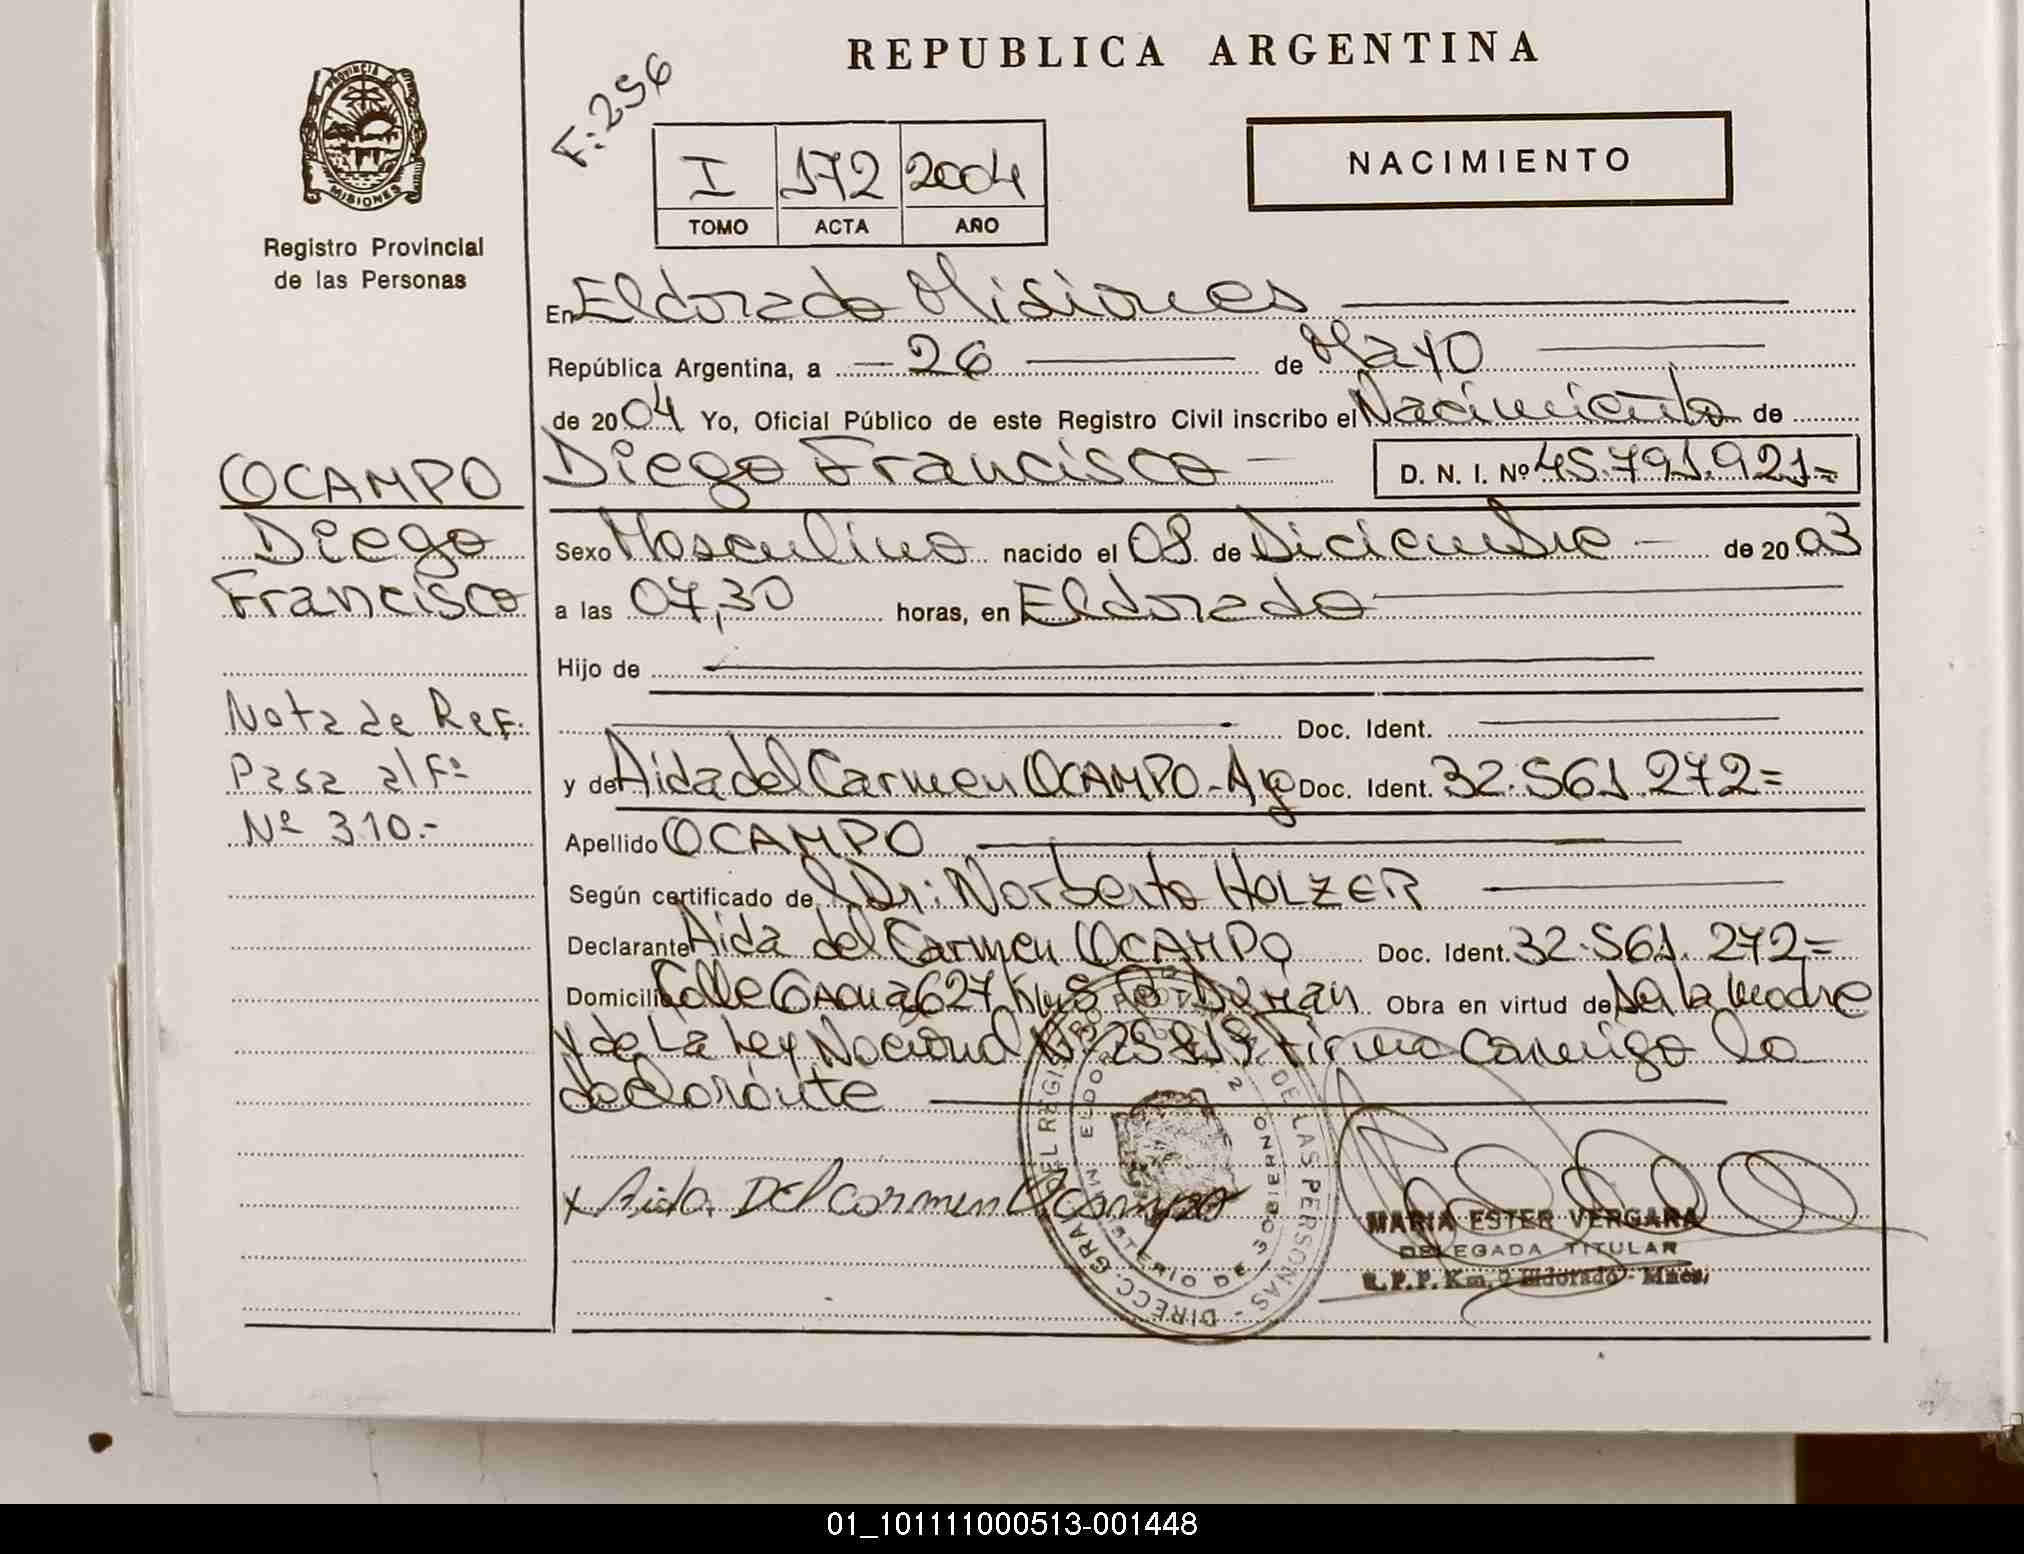 REPUBLICA ARGENTINA
F: 256
PROVINCIA DE MISIONES
Registro Provincial
de las Personas
I 172 2004
TOMO ACTA AÑO
NACIMIENTO
En Eldorado Misiones
República Argentina, a 26 de Mayo
de 2004 Yo, Oficial Público de este Registro Civil inscribo el Nacimiento de
Diego Francisco D. N. I. Nº 45.791.921=
Sexo Masculino nacido el 08 de Diciembre de 2003
a las 07,30 horas, en Eldorado
Hijo de
Doc. Ident.
y de Aida del Carmen OCAMPO - Arg Doc. Ident. 32.561.272=
Apellido OCAMPO
Según certificado del Dr: Norberto HOLZER
Declarante Aida del Carmen OCAMPO Doc. Ident. 32.561.272=
Domicilio Calle 627 Km 8 Obra en virtud de ser la madre
y de La Ley Nacional Nº 25819. Firma conmigo la
declarante
OCAMPO
Diego
Francisco
Nota de Ref.
Pasa al Fº
Nº 310.-
x Aida Del Carmen Ocampo
DIRECC. GRAL. DEL REGISTRO DE LAS PERSONAS - MINISTERIO DE GOBIERNO
MARIA ESTER VERGARA
DELEGADA TITULAR
R.P.P. Km. 9 Eldorado - Mnes.
01_101111000513-001448